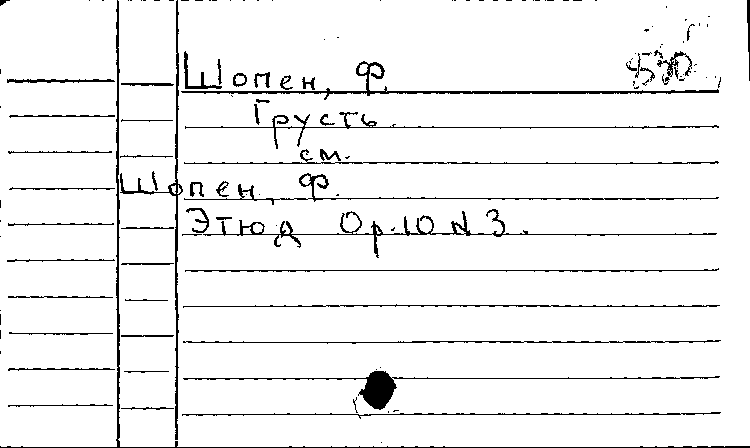 Шопен, Ф.
Грусть.
см.
Шопен, Ф.
Этюд Op.10 N 3.